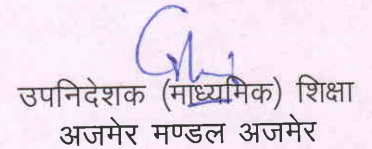 उपनिदेशक (माध्यमिक) शिक्षा
अजमेर मण्डल अजमेर